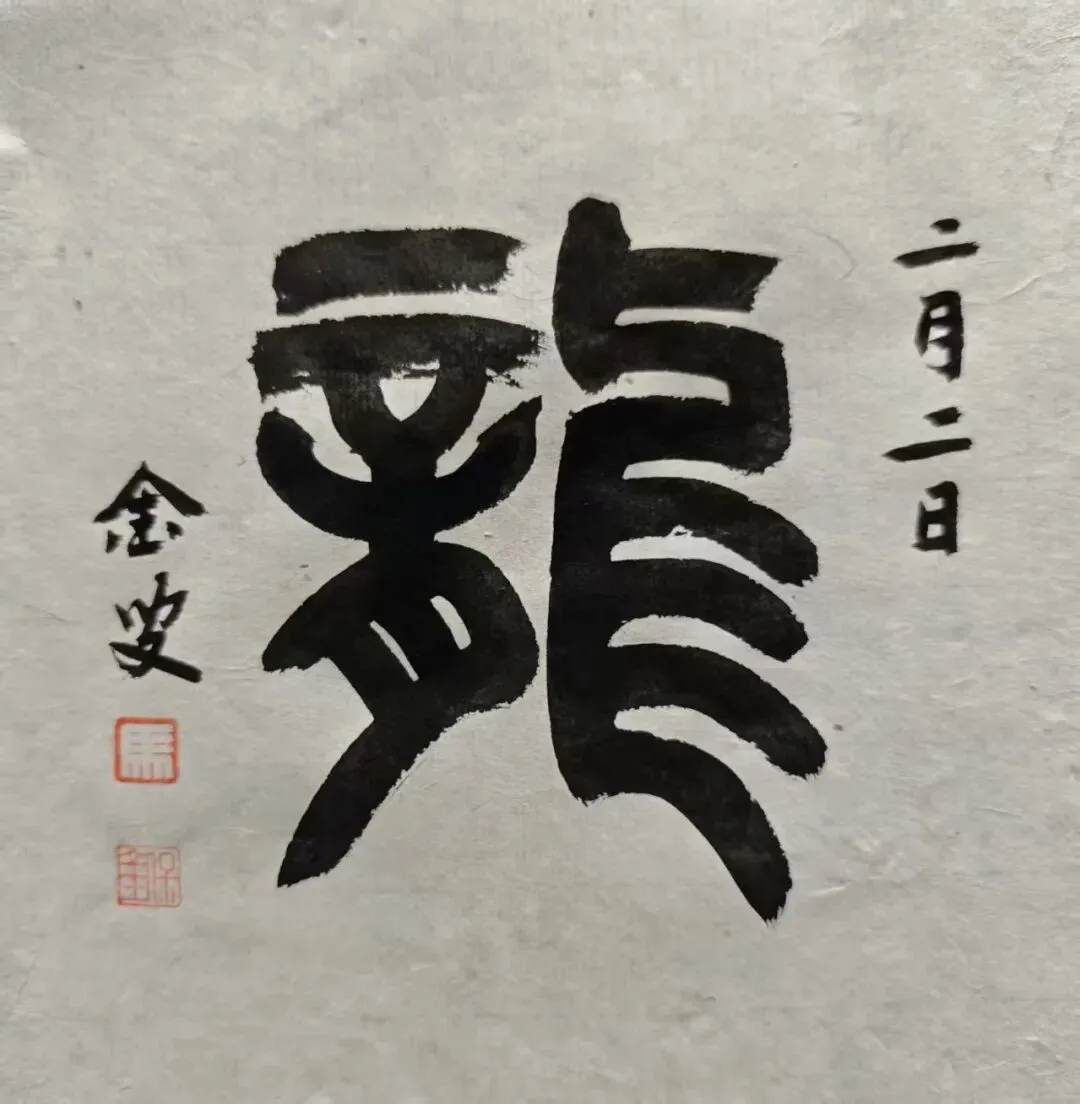 二月二日
龍
金叟
馬